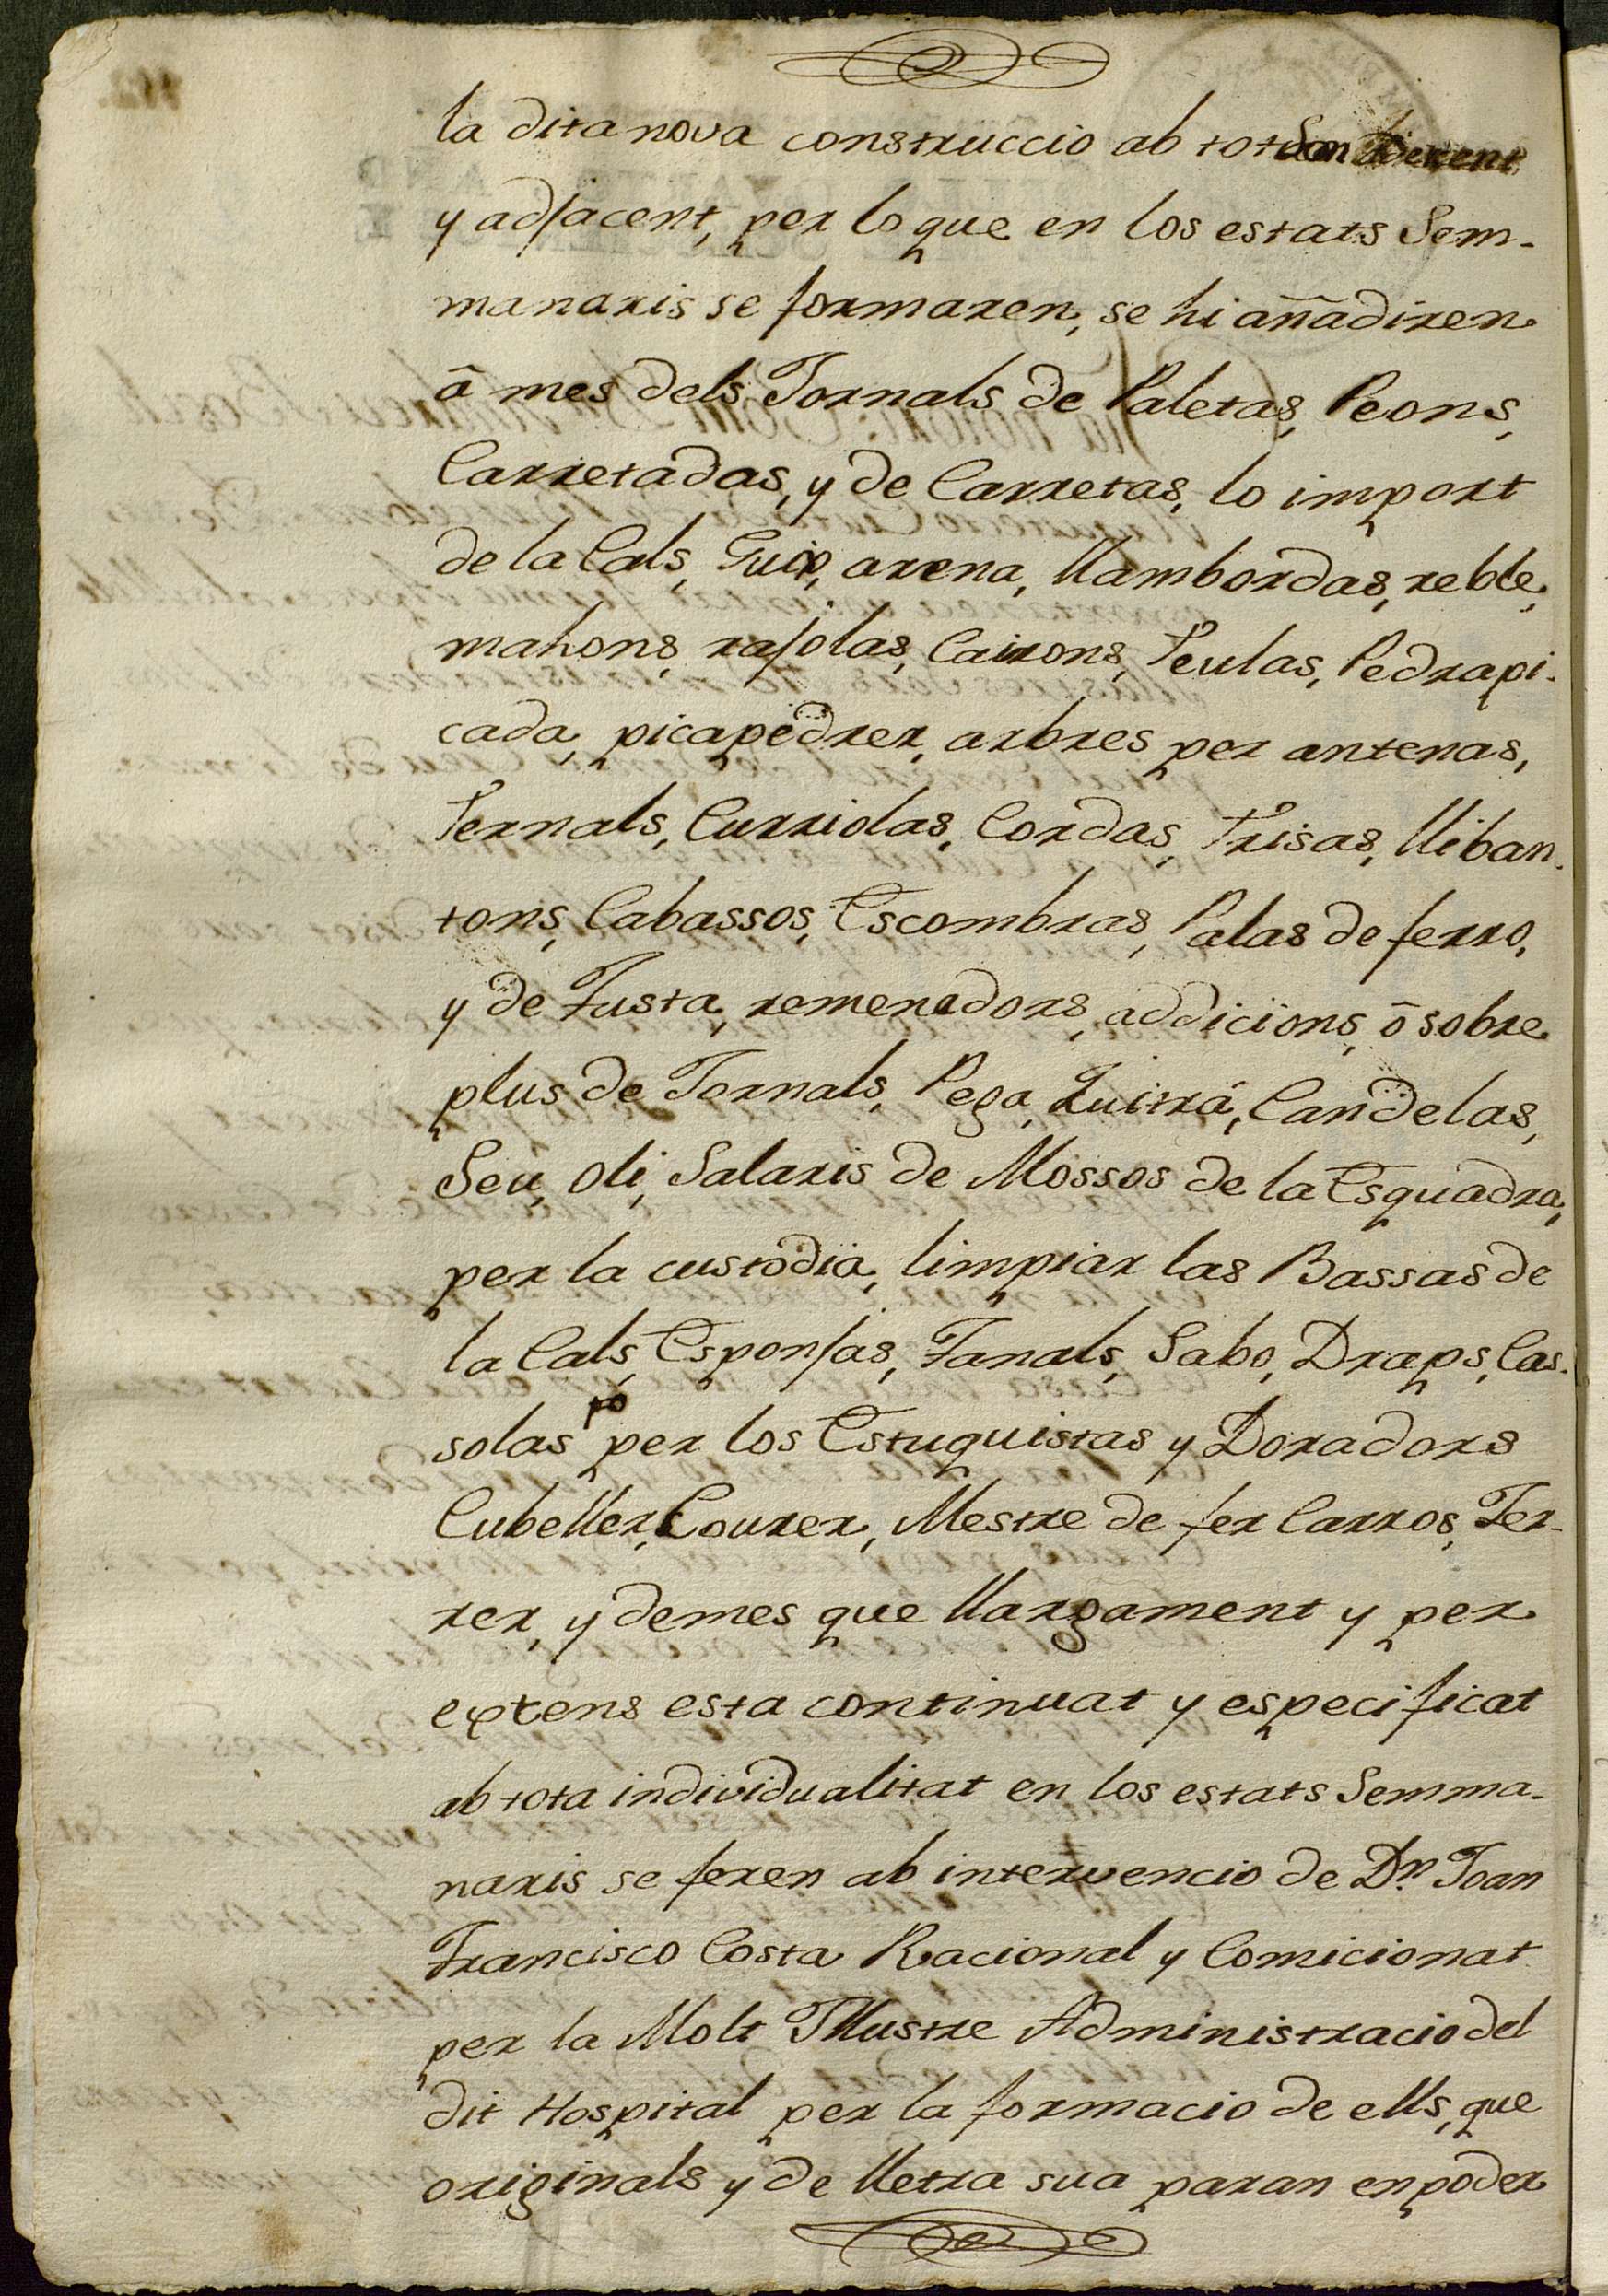 la dita nova construccio ab tot son aderent
y adjacent, per lo que en los estats Sem-
manaris se formaren, se hi añadiren
â mes dels Jornals de Paletas, Peons,
Carretadas, y de Carretas, lo import
de la Cals, Guix, arena, llambordas, reble,
mahons, rajolas, Cairons, Teulas, Pedra pi-
cada, picapedrer, arbres per antenas,
Ternals, Curriolas, Cordas, Trisas, lliban-
tons, Cabassos, Escombras, Palas de ferro,
y de Fusta, remenadors, addicions, ô sobre
plus de Jornals, Pega, Quitrá, Candelas,
Seu, oli, Salaris de Mossos de la Esquadra,
per la custodia, limpiar las Bassas de
la Cals, Esponjas, Fanals, Sabo, Draps, Cas-
solas per los Estuquistas y Doradors
Cubeller, Courer, Mestre de fer Carros, Fer-
rer, y demes que llargament y per
extens esta continuat y especificat
ab tota individualitat en los estats Semma-
naris se feren ab intervencio de Dn. Joan
Francisco Costa Racional y Comicionat
per la Molt Illustre Administracio del
dit Hospital per la formacio de ells, que
originals y de lletra sua paran en poder